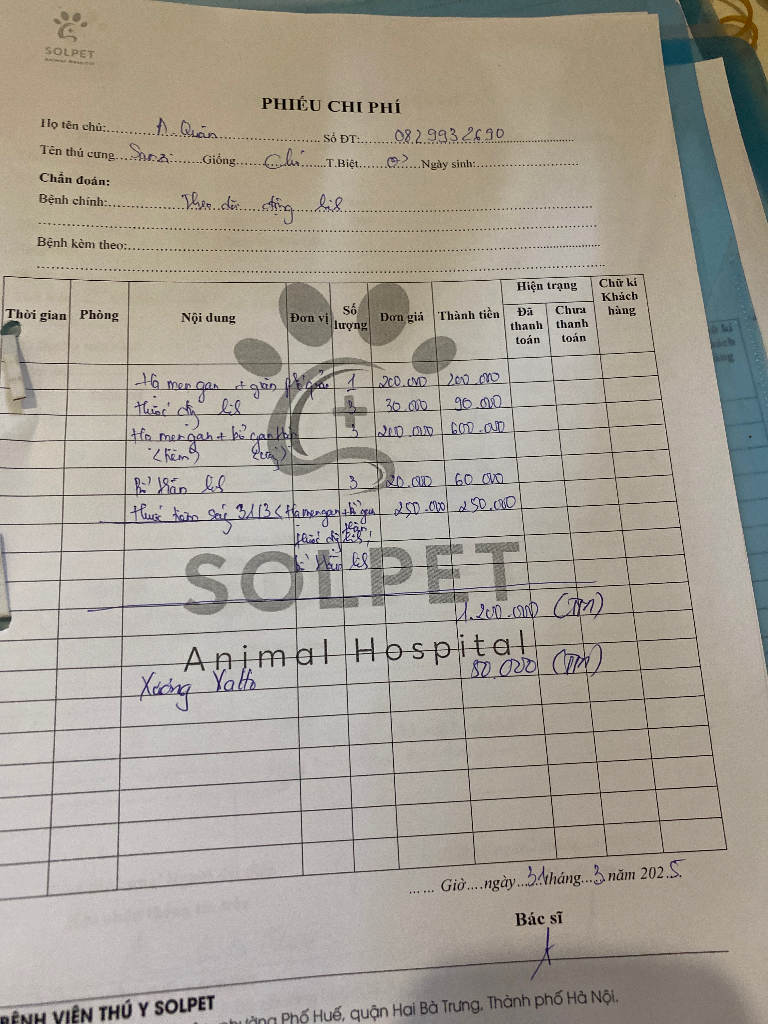 SOLPET
Animal Hospital
PHIẾU CHI PHÍ
Họ tên chủ: A. Quân Số ĐT: 0829932690
Tên thú cưng Giống Chó T.Biệt Ngày sinh:
Chẩn đoán:
Bệnh chính: Theo dõi động
Bệnh kèm theo:
Thời gian Phòng Nội dung Đơn vị Số lượng Đơn giá Thành tiền Hiện trạng Đã thanh toán Chưa thanh toán Chữ kí Khách hàng
Hạ men gan + 1 200.000 200.000
thuốc 3 30.000 90.000
Hạ men gan + bổ gan 3 200.000 600.000
(tiêm)
3 20.000 60.000
thuốc tiêm sáng 31/3 < Hạ men gan + bổ gan 250.000 250.000
thuốc
SOLPET
1.200.000 (TM)
Animal Hospital
80.000 (TM)
Xương
...... Giờ....ngày 31 tháng 3 năm 2025
Bác sĩ
BỆNH VIỆN THÚ Y SOLPET
phường Phố Huế, quận Hai Bà Trưng, Thành phố Hà Nội.